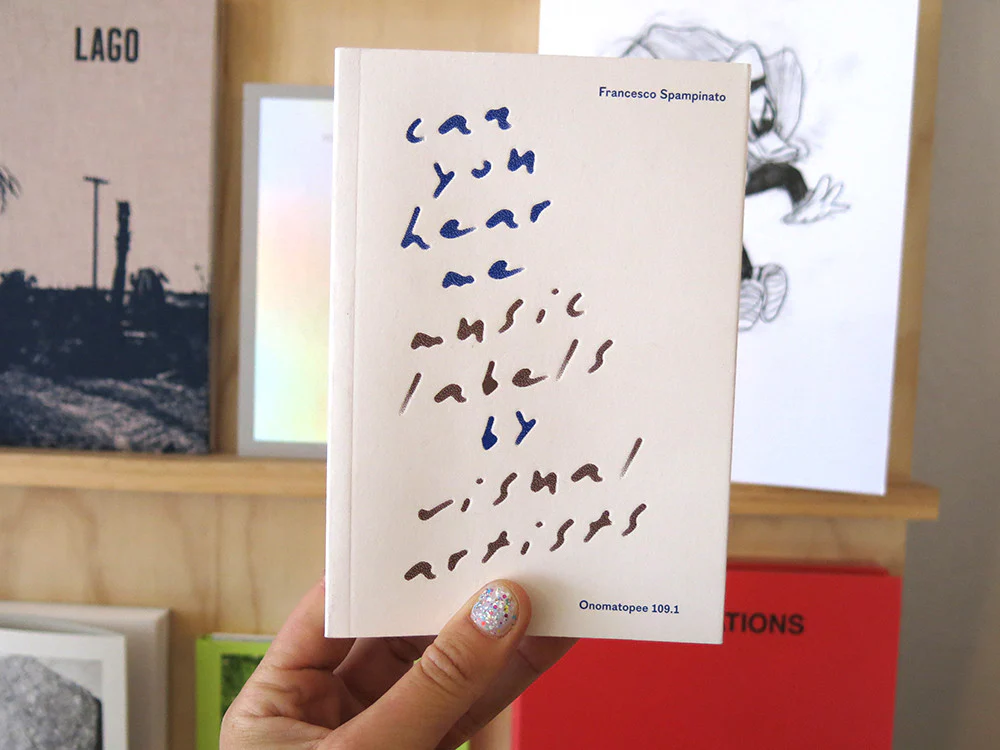 LAGO
Francesco Spampinato
can
you
hear
me
music
labels
by
visual
artists
Onomatopee 109.1
ATIONS